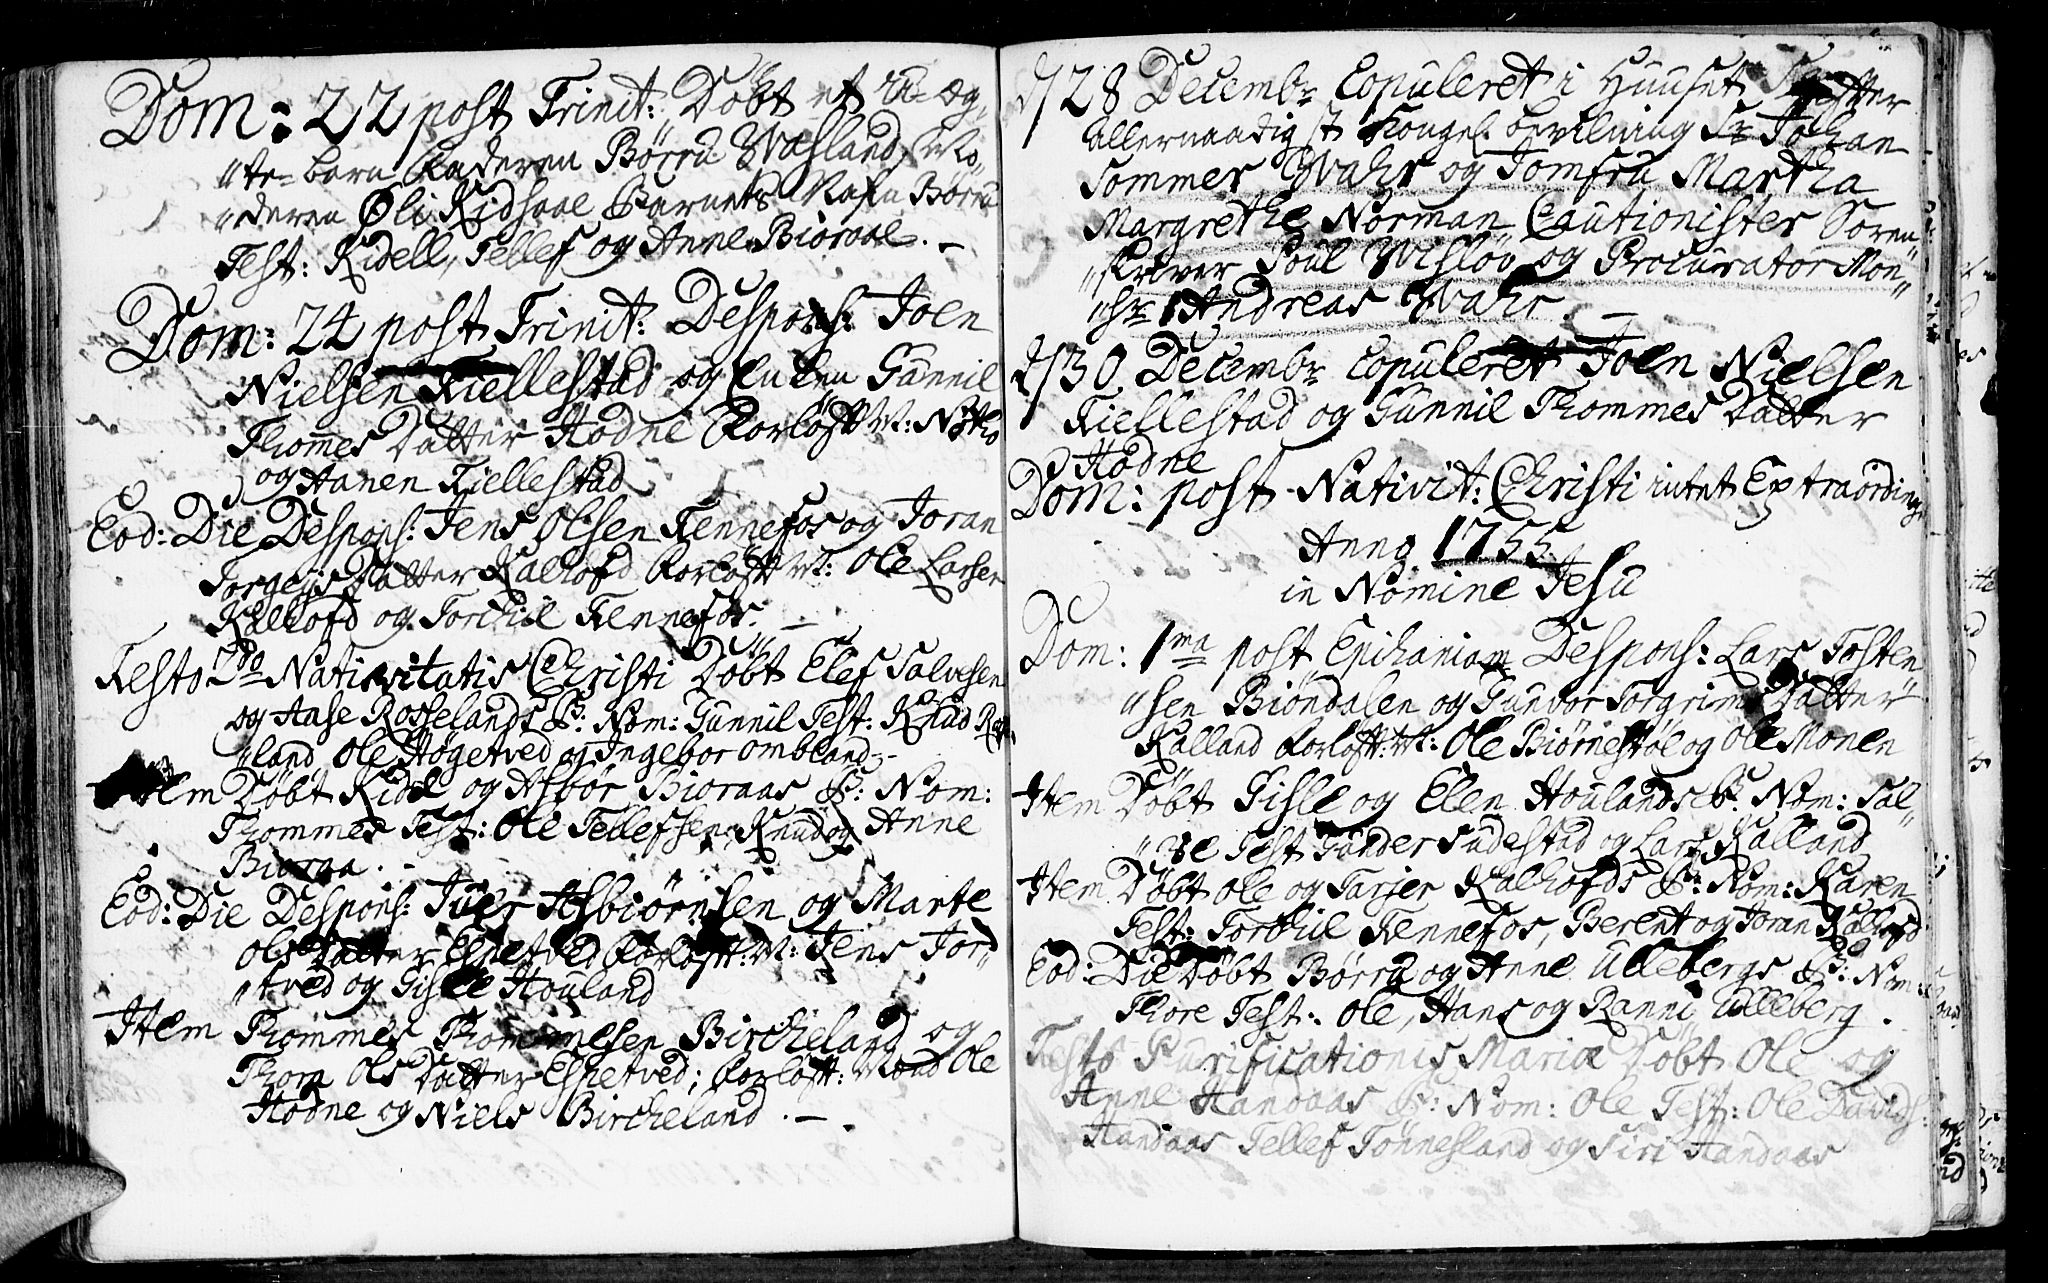 Dom: 22 post Trinit: Döbt et U-Æg,
"te-barn Faderen Börru Vasland, Mo,
"deren Øli Ridsaae Barnets Nafn Börru
Test: Kidell, Tellef og Anne Bioraae. -
Dom: 24 post Trinit: Despons: Joen
Nielsen Kiellestad og Enken Gunnil
Thomes Datter Hodne Forlöft M:
og Hanen Kiellestad
Eod: Die Despons: Jens Olsen Kennefos og Joran
Torgeys Datter Kalhofd Forlöft M: Ole Larsen
Kalhofd og Torchil Kennefos. -
Festo 2do Nativitatis Christi Döbt Elef Salvesen
og Aase Rosselands B: Nom: Gunnil Test: Knud Ros,
"land Ole Høgetved og Ingebor Ombland -
Item Döbt Kidel og Asbör Bioraas B: Nom:
Thommes Test: Ole Tellefsen, Knud og Anne
Bioraa.
Eod: Die Despons: Juer Asbiörnsen og Marte
Ols Datter Espetved Forlöft: M: Jens Jor,
"tved og Gisle Houland
Item Thommes Thommesen Bircheland og
Thora Ols Datter Espetved; Forlöft: Mænd Ole
Hodne og Niels Bircheland. -
d/28 Decembr Copuleret i Huuset efter
Allernaadigst Kongel. bevilning Sr Johan
Sommer Wahr og Jomfru Martha
Margrethe Norman Cautionister Soren,
"skriver Poul Wislöv og Procurator Mon,
"sr Andreas Wahr. -
d/30. Decembr Copuleret Joen Nielsen
Kiellestad og Gunnil Thommes Datter
Hodne
Dom: post Nativit: Christi intet Extraording:
Anno 1755
in Nomine Jesu
Dom: 1ma post Epihaniam Despons: Lars Tosten,
"sen Biöndalen og Gunvor Torgrims Datter
Kalland Forlöft: M: Ole Biörnestöl og Ole Monen
Item Döbt Gisle og Elen Houlands B: Nom: Sal,
"ve Test Gunder Sudestad og Lars Kalland
Item Döbt Ole og Tarjer Kalhofds B: Nom: Karen
Test: Torchil Kennefos, Berent og Joran Kalhofd
Eod: Die Döbt Börru og Anne Ullebergs B: Nom:
Thore Test: Ole, Hans og Ranni Ulleberg.
Festo Purificationis Mariæ Döbt Ole og
Anne Handaas B: Nom: Ole Test: Ole Davids:
Handaas Tellef Tönnesland og Siri Handaas